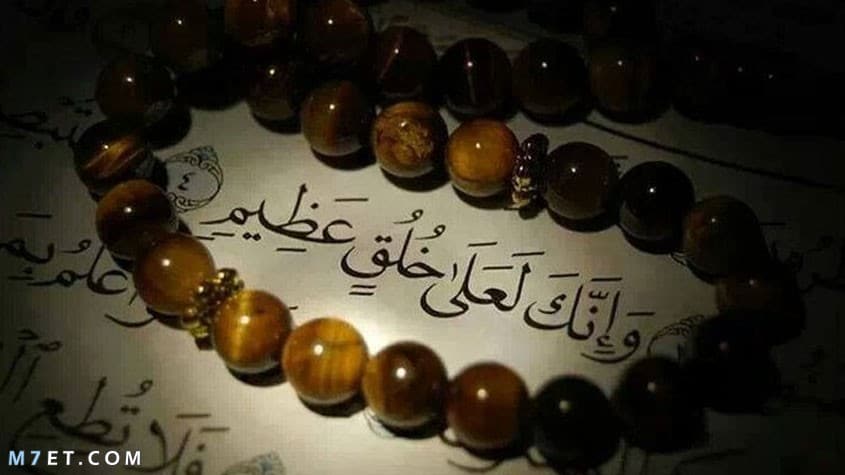 وَإِنَّكَ لَعَلَىٰ خُلُقٍ عَظِيمٍ ٤
فَلَا تُطِعِ
M7ET.COM